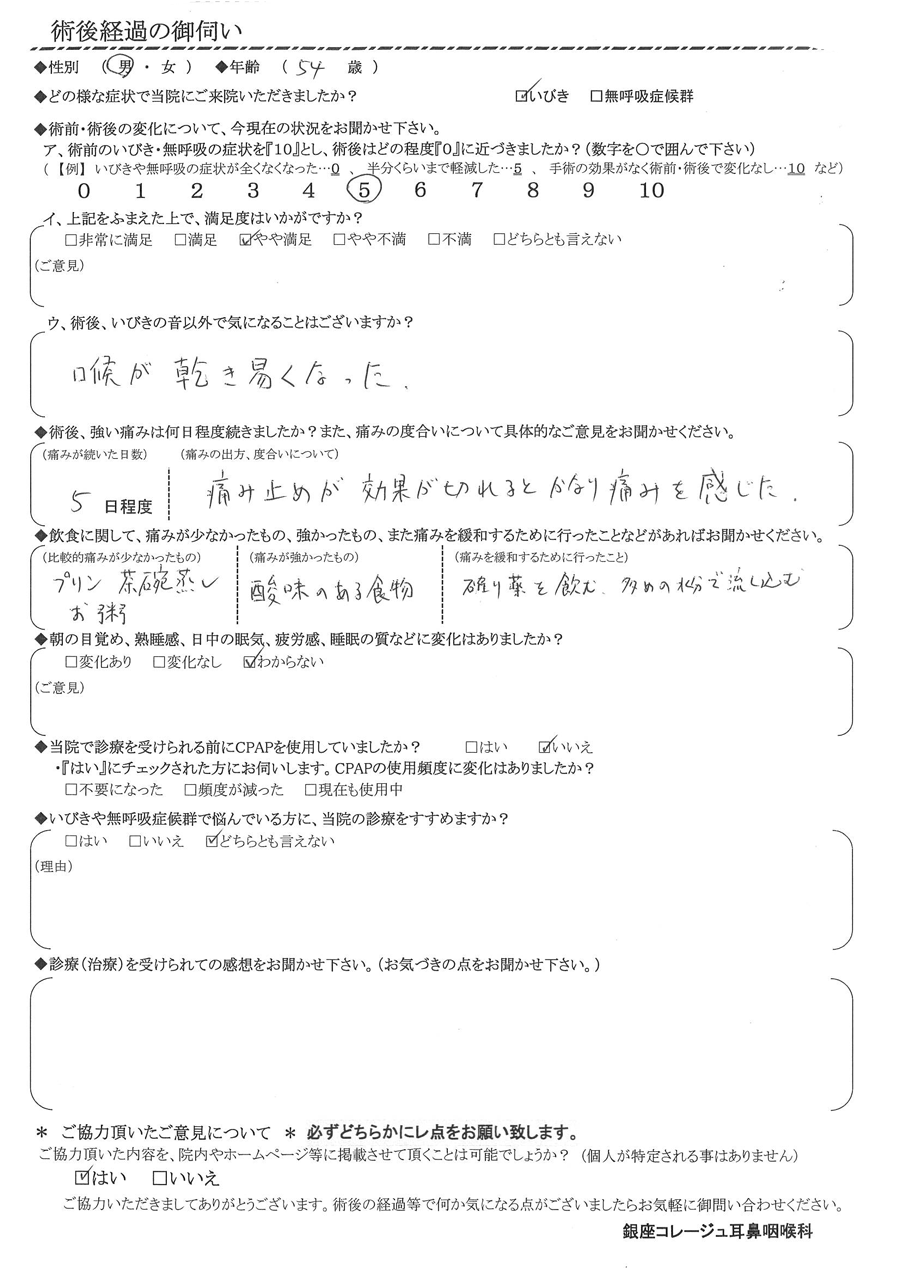 術後経過の御伺い
◆性別 （ 男 ・ 女 ） ◆年齢 （ 54 歳 ）
◆どの様な症状で当院にご来院いただきましたか？ ☑いびき □無呼吸症候群
◆術前・術後の変化について、今現在の状況をお聞かせ下さい。
ア、術前のいびき・無呼吸の症状を『10』とし、術後はどの程度『0』に近づきましたか？（数字を○で囲んで下さい）
（ 【例】 いびきや無呼吸の症状が全くなくなった…0 、 半分くらいまで軽減した…5 、 手術の効果がなく術前・術後で変化なし…10 など）
0 1 2 3 4 5 6 7 8 9 10
イ、上記をふまえた上で、満足度はいかがですか？
□非常に満足 □満足 ☑やや満足 □やや不満 □不満 □どちらとも言えない
（ご意見）
ウ、術後、いびきの音以外で気になることはございますか？
喉が乾き易くなった.
◆術後、強い痛みは何日程度続きましたか？また、痛みの度合いについて具体的なご意見をお聞かせください。
（痛みが続いた日数） （痛みの出方、度合いについて）
5 日程度 痛み止めが効果が切れるとかなり痛みを感じた.
◆飲食に関して、痛みが少なかったもの、強かったもの、また痛みを緩和するために行ったことなどがあればお聞かせください。
（比較的痛みが少なかったもの） （痛みが強かったもの） （痛みを緩和するために行ったこと）
プリン 茶碗蒸し 酸味のある食物 薬を飲む. 多めの水分で流し込む
お粥
◆朝の目覚め、熟睡感、日中の眠気、疲労感、睡眠の質などに変化はありましたか？
□変化あり □変化なし ☑わからない
（ご意見）
◆当院で診療を受けられる前にCPAPを使用していましたか？ □はい ☑いいえ
・『はい』にチェックされた方にお伺いします。CPAPの使用頻度に変化はありましたか？
□不要になった □頻度が減った □現在も使用中
◆いびきや無呼吸症候群で悩んでいる方に、当院の診療をすすめますか？
□はい □いいえ ☑どちらとも言えない
（理由）
◆診療（治療）を受けられての感想をお聞かせ下さい。（お気づきの点をお聞かせ下さい。）
＊ ご協力頂いたご意見について ＊ 必ずどちらかにレ点をお願い致します。
ご協力頂いた内容を、院内やホームページ等に掲載させて頂くことは可能でしょうか？ （個人が特定される事はありません）
☑はい □いいえ
ご協力いただきましてありがとうございます。術後の経過等で何か気になる点がございましたらお気軽に御問い合わせください。
銀座コレージュ耳鼻咽喉科